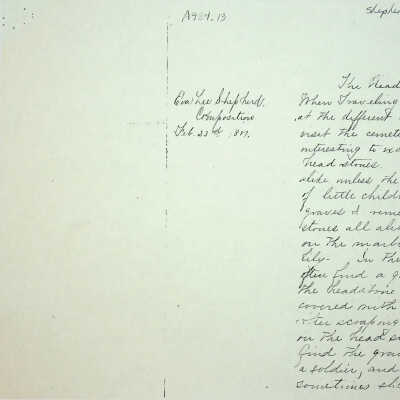 A984.13
Shepher
Eva Lee Shepherd.
Composition
Feb. 23rd, 1887.
The Head
When Traveling
at the different
visit the cemete
interesting to ex
head stones.
alike unless the
of little childr
graves I reme
stones all ali
on the marb
lily. In the
often find a g
the headstone
covered with
after scraping
on the head s
find the gra
a soldier, and
sometimes sh